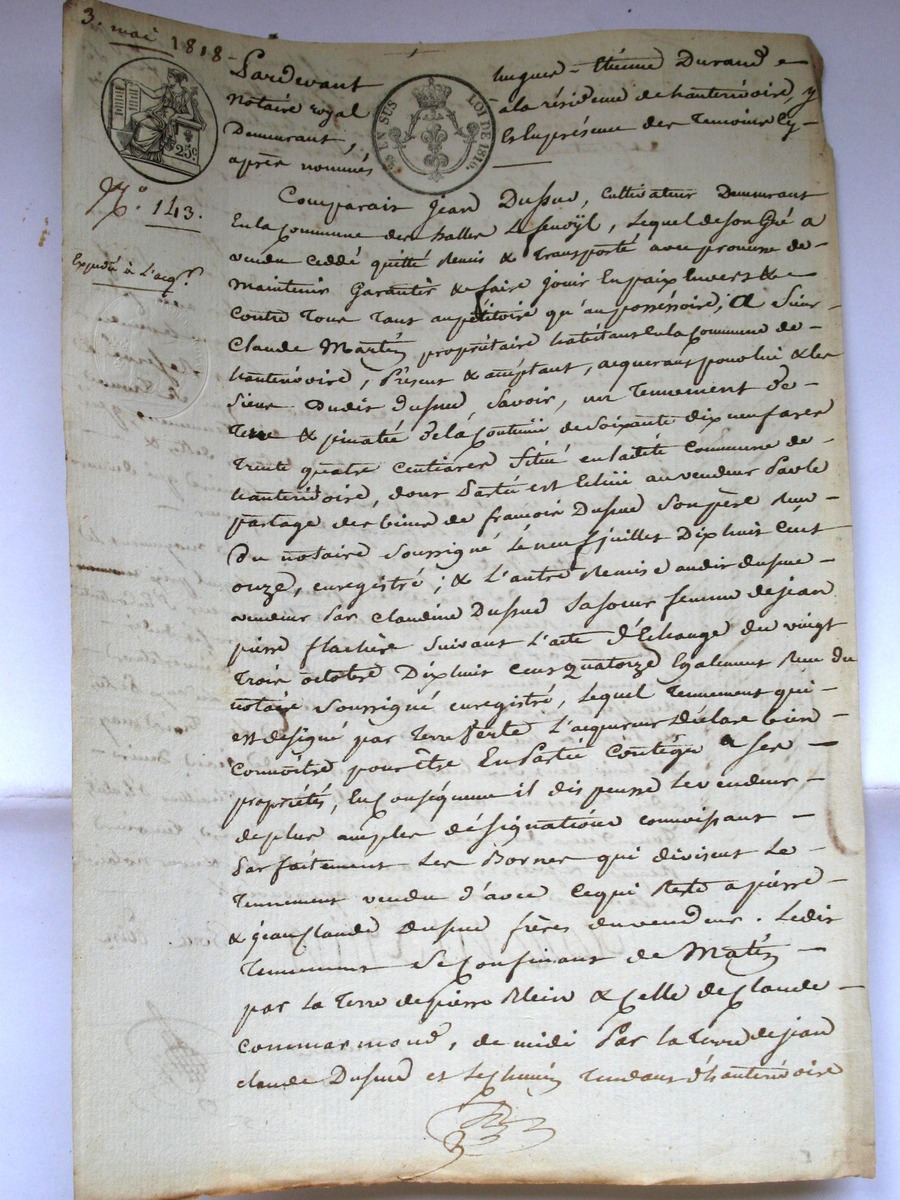 3. mai 1818
Pardevant hugues - Etienne Durand
notaire royal a la résidence de hauterivoire, y
Demeurant, & En présence des Temoins Cy-
après nommés
25c
EN SUS LOI DE 1816.
N.° 143.
Expedié à L'acq.r
Comparait Jean Dupué, Cultivateur Demeurant
En la Commune des halles Lefenoÿl, Lequel de son Gré a
vendu cedé quitté Remis & Transporté avec promesse de
Maintenir Garantir & faire jouir En paix Envers &
Contre Tous Tant au pétitoire qu'au possessoire, a Sieur
Claude Martin propriétaire habitant En la Commune de
hauterivoire, Présent & acceptant, acquerant pour lui & les
Siens dudit Dupué Savoir, un Tennement de
Terre & pinatée de la Contenue de Soixante dix neuf ares
Trente quatre Centiares Situé en ladite Commune de
hauterivoire, dont Partie est Echue au vendeur Par le
partage des biens de francois Dupué Son père Reçu
Du notaire Soussigné Le neuf juillet Dix huit Cent
onze, enregistré ; & L'autre Remise audit dupué
vendeur Par Claudine Dupué Sa soeur femme de jean
pierre flachère Suivant L'acte d'Echange du vingt
Trois octobre Dix huit Cent quatorze Egalement Reçu du
notaire Soussigné enregistré, Lequel Tennement qui
est désigné par Terre Verte L'acquereur Déclare bien
Connoitre pour être En Partie Contigu a Ses
propriétés, En Conséquence il dispense Le vendeur
de plus amples désignations connoissant
Parfaitement Les Bornes qui divisent Le
Tennement vendu d'avec Ce qui Reste a pierre
& jean Claude Dupué frères du vendeur. Ledit
Tennement Se Confinant de Matin
par La Terre de pierre & Celle de Claude
Commarmond, de midi Par la Terre de jean
Claude Dupué et Le Chemin Tendant d'hauterivoire